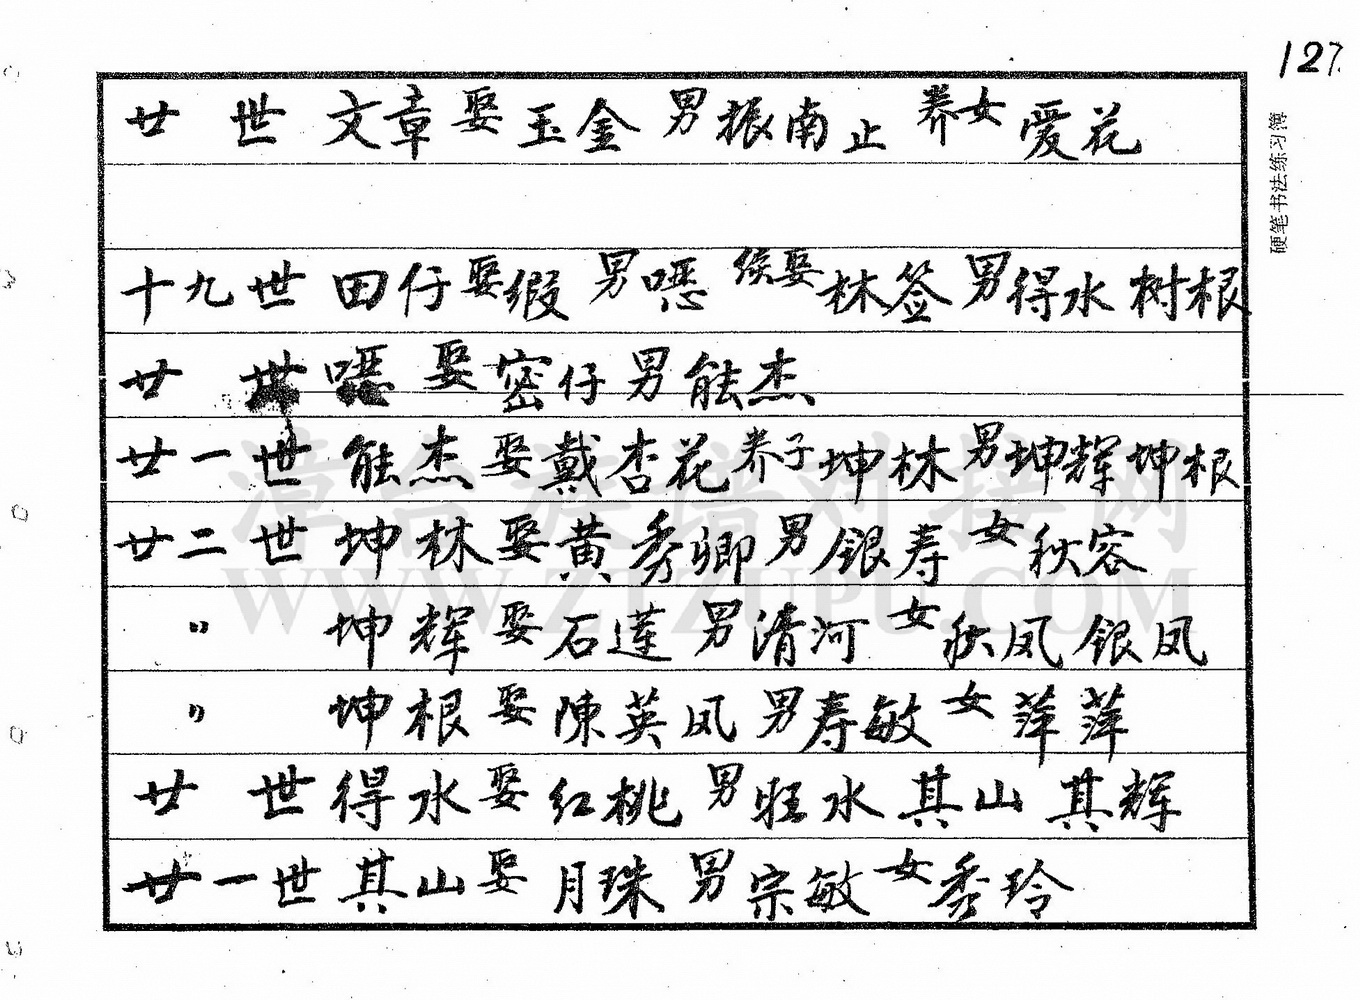 127
硬笔书法练习簿
廿 世 文章 娶 玉金 男 振南 止 养女 爱花
十九世 田仔 娶 缎 男 噁 侯娶 林签 男 得水 树根
廿 世 噁 娶 密仔 男 能杰
廿一世 能杰 娶 戴杏花 养子 坤林 男 坤辉 坤根
廿二世 坤林 娶 黄秀卿 男 银寿 女 秋容
〃 坤辉 娶 石莲 男 清河 女 秋凤 银凤
〃 坤根 娶 陳英凤 男 寿敏 女 萍萍
廿 世 得水 娶 红桃 男 旺水 其山 其辉
廿一世 其山 娶 月珠 男 宗敏 女 秀玲
漳台族谱对接网
WWW.ZTZUPU.COM